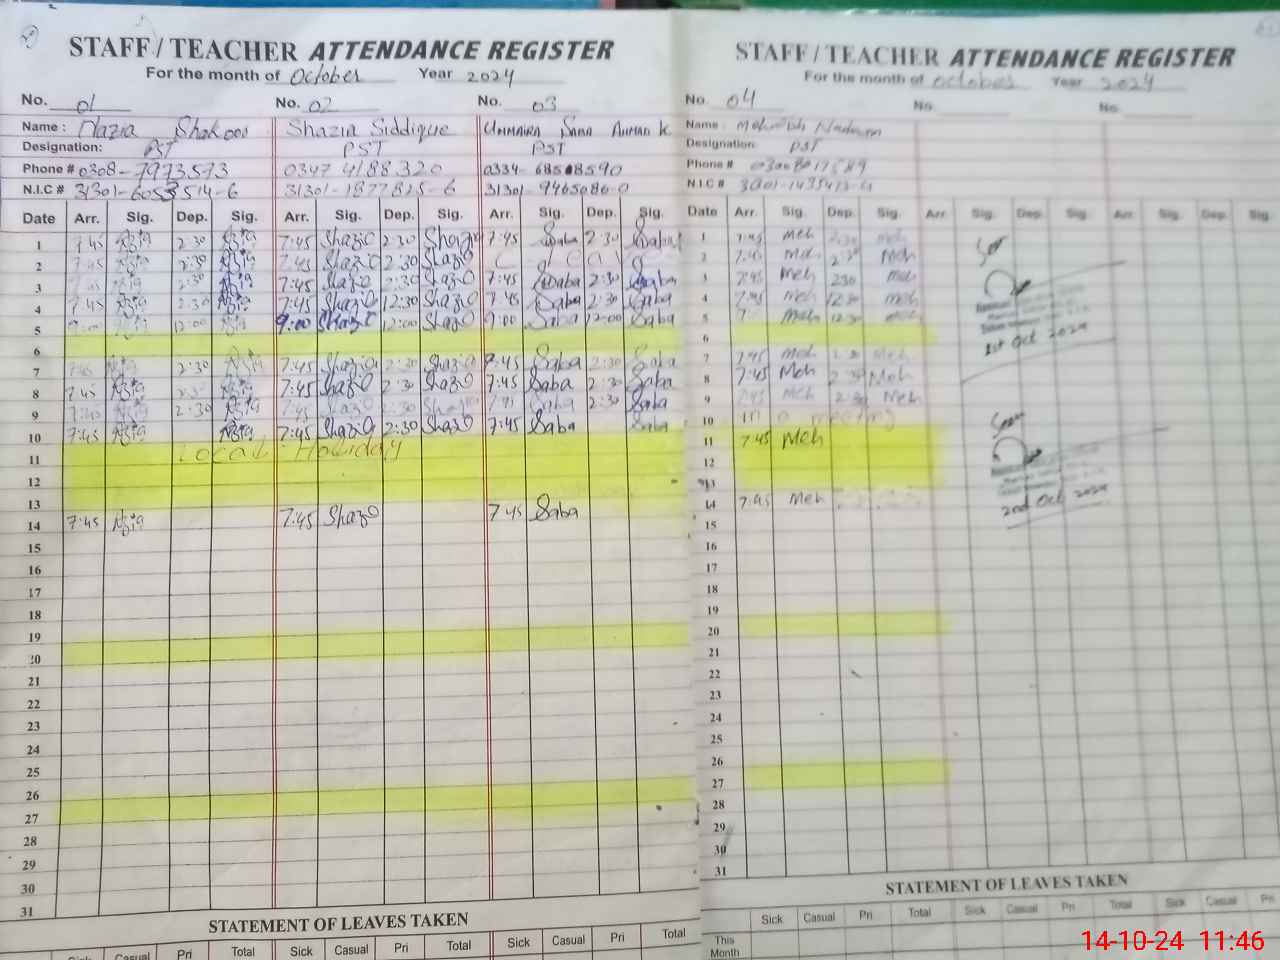 STAFF / TEACHER ATTENDANCE REGISTER
For the month of October Year 2024
No. 01 No. 02 No. 03
Name : Nazia Shakoor Shazia Siddique Ummaira Saba Ahmad K
Designation: PST PST PST
Phone # 0308-7973573 0347 4188320 0334-68508590
N.I.C # 31301-6053514-6 31301-1877825-6 31301-9465086-0
Date Arr. Sig. Dep. Sig. Arr. Sig. Dep. Sig. Arr. Sig. Dep. Sig.
1 7:45 2:30 7:45 Shazo 2:30 Shazo 7:45 Saba 2:30 Saba
2 7:45 2:30 7:45 Shazo 2:30 Shazo
3 2:30 7:45 Shazo 2:30 Shazo 7:45 Saba 2:30 Saba
4 7:45 2:30 7:45 Shazo 12:30 Shazo 7:45 Saba 2:30 Saba
5 9:00 12:00 9:00 Shazo 12:00 Shazo 9:00 Saba 12:00 Saba
6
7 7:45 2:30 7:45 Shazo 2:30 Shazo 7:45 Saba 2:30 Saba
8 7:45 2:30 7:45 Shazo 2:30 Shazo 7:45 Saba 2:30 Saba
9 7:45 2:30 7:45 Shazo 2:30 Shazo 7:45 Saba 2:30 Saba
10 7:45 7:45 Shazo 2:30 Shazo 7:45 Saba Saba
11 Local Holiday
12
13
14 7:45 7:45 Shazo 7:45 Saba
15
16
17
18
19
20
21
22
23
24
25
26
27
28
29
30
31
STATEMENT OF LEAVES TAKEN
Sick Casual Pri Total Sick Casual Pri Total Sick Casual Pri Total
STAFF / TEACHER ATTENDANCE REGISTER
For the month of October Year 2024
No. 04 No. No.
Name :
Designation: PST
Phone #
N.I.C #
Date Arr. Sig. Dep. Sig. Arr. Sig. Dep. Sig. Arr. Sig. Dep. Sig.
1 7:45 Meh 2:30 Meh
2 7:45 Meh 2:30 Meh
3 7:45 Meh 230 Meh
4 7:45 Meh 12:30 Meh
5 Meh 12:30 Meh
6
7 7:45 Meh 2:30 Meh
8 7:45 Meh 2:30 Meh
9 7:45 Meh 2:30 Meh
10 in a meeting
11 7:45 Meh
12
13
14 7:45 Meh
15
16
17
18
19
20
21
22
23
24
25
26
27
28
29
30
31
1st Oct 2024
2nd Oct 2024
STATEMENT OF LEAVES TAKEN
Sick Casual Pri Total Sick Casual Pri Total Sick Casual Pri
This Month
14-10-24 11:46